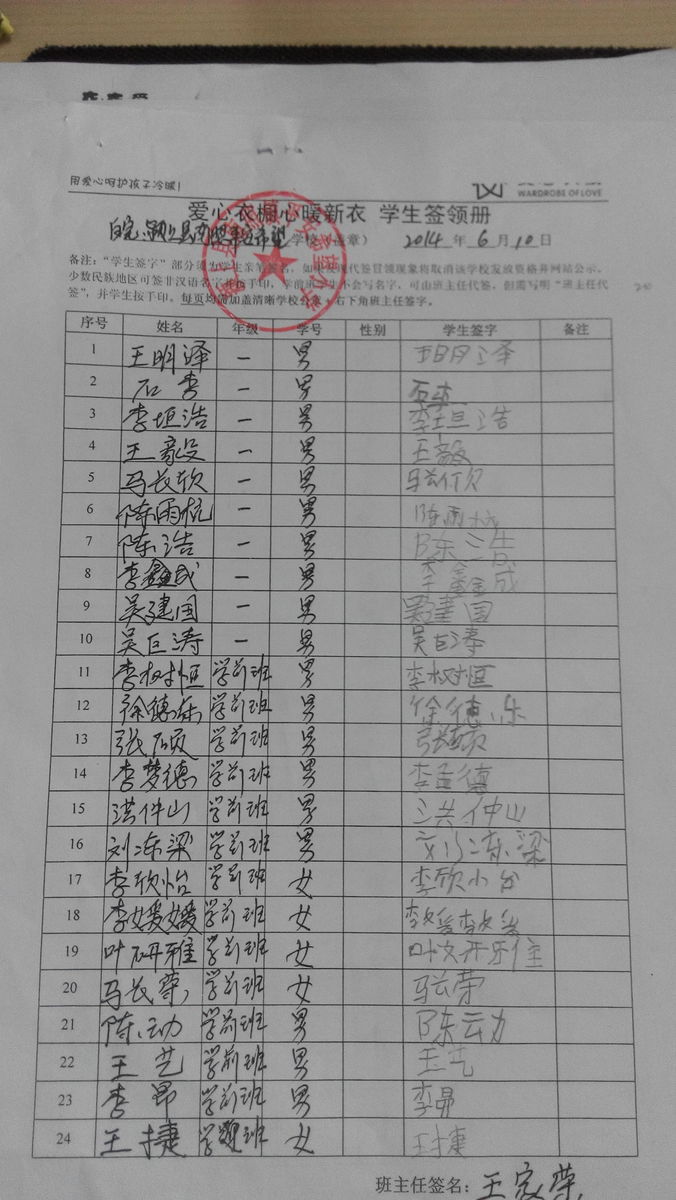 用爱心呵护孩子冷暖!
WARDROBE OF LOVE
爱心衣橱心暖新衣 学生签领册
希望学校(盖章) 2014 年 6 月 10 日
备注:“学生签字”部分须为学生亲笔签名,如果发现代签冒领现象将取消该学校发放资格并网站公示。
少数民族地区可签非汉语名字并按手印,学前班学生不会写名字,可由班主任代签,但需写明“班主任代
签”,并学生按手印。每页均需加盖清晰学校公章,右下角班主任签字。
序号 姓名 年级 学号 性别 学生签字 备注
1 王明泽 一 男 王明泽
2 石李 一 男 石李
3 李垣浩 一 男 李垣浩
4 王毅 一 男 王毅
5 马长欣 一 男
6 陈雨杭 一 男 陈雨杭
7 陈浩 一 男 陈浩
8 李鑫成 一 男 李鑫成
9 吴建国 一 男 吴建国
10 吴巨涛 一 男 吴巨涛
11 李树恒 学前班 男 李树恒
12 徐德乐 学前班 男 徐德乐
13 张硕 学前班 男 张硕
14 李梦德 学前班 男 李孟德
15 洪仲山 学前班 男 洪仲山
16 刘冻梁 学前班 男 刘冻梁
17 李欣怡 学前班 女 李欣怡
18 李媛媛 学前班 女 李媛媛
19 叶研雅 学前班 女
20 马长荣 学前班 女
21 陈动 学前班 男 陈动
22 王艺 学前班 男 王艺
23 李昂 学前班 男 李昂
24 王捷 学前班 女 王捷
班主任签名:王家荣